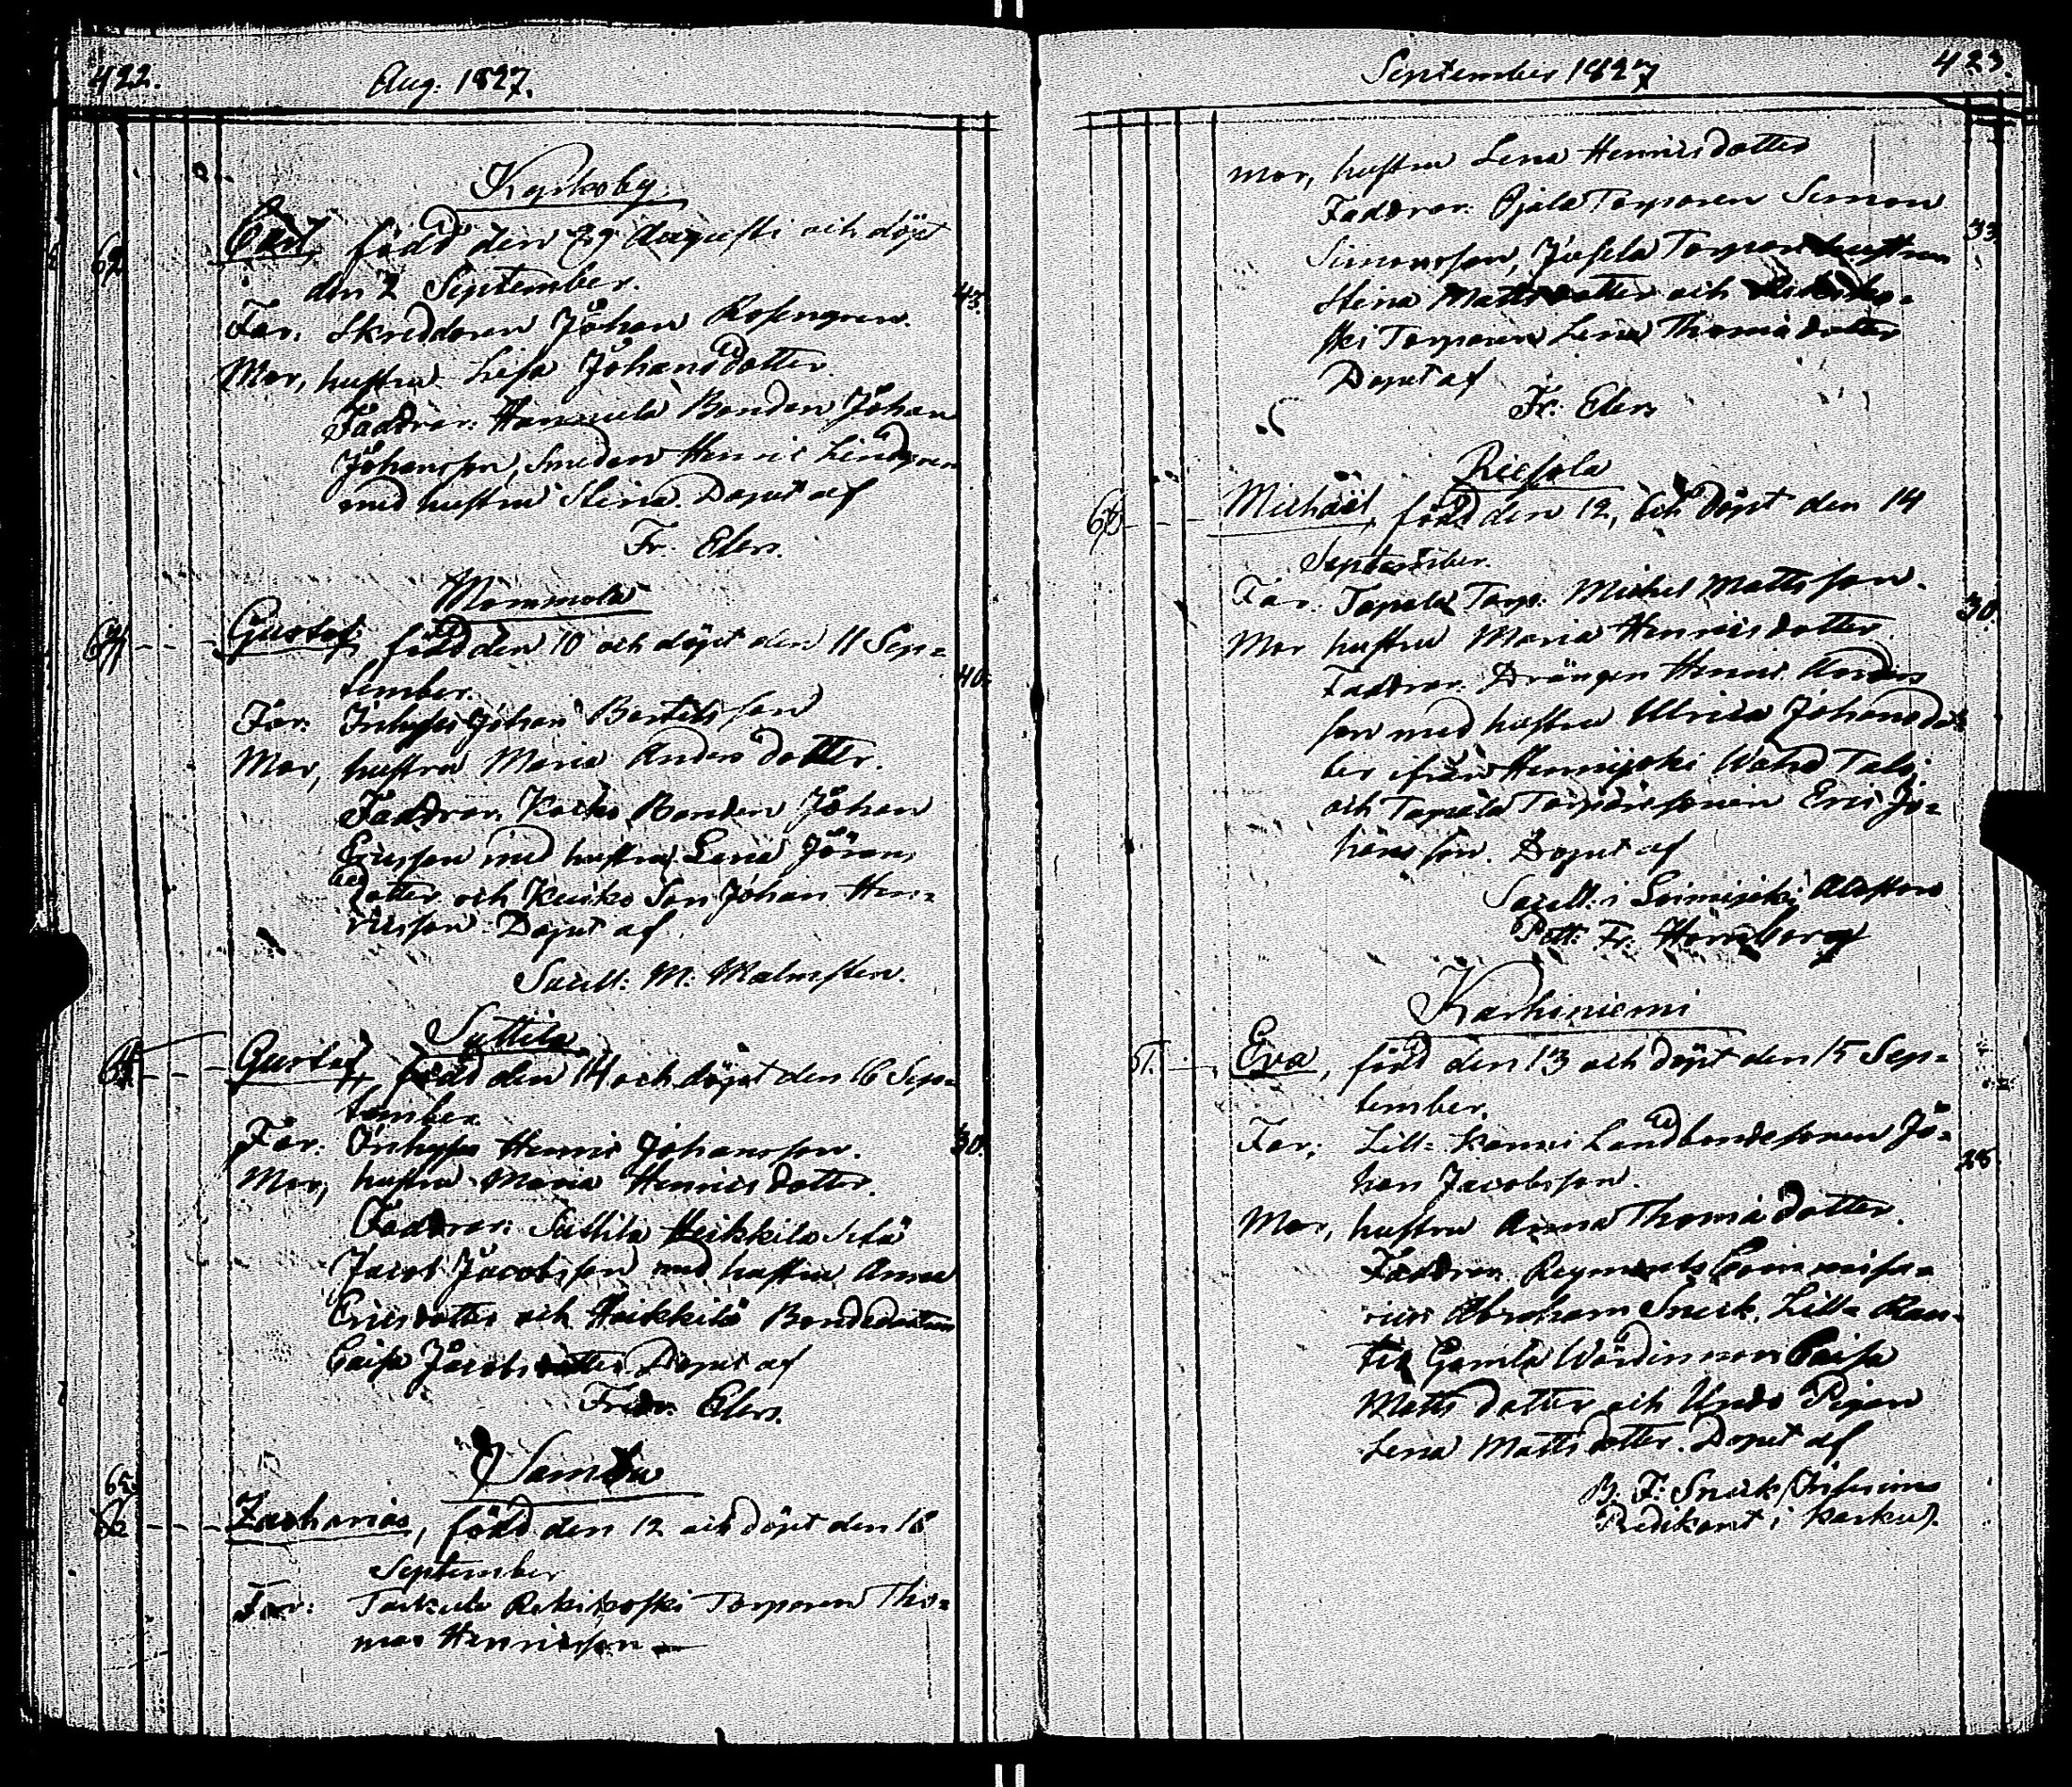 422.
Aug. 1827.
Kyrkoby
Carl, född den 29 Augusti och döpt
den 2 September.
Far. Skreddaren Johan Rosengren.
Mor, hustru Lisa Johansdotter.
43.
Faddrar: Bonden Johan
Johansson, Smeden Henric Lindgren
med hustru Stina. Döpt af
Fr. Elers.
Mommola
Gustaf, född den 10 och döpt den 11 Sep=
tember.
40.
Far: Inhyses Johan Bertilsson
Mor, hustru Maria Andersdotter.
Faddrar. Bonden Johan
Ericsson med hustru Lena Jörans
dotter och Son Johan Hen=
ricsson. Döpt af
Sacell: M. Malmsten.
Suttila
Gustaf, född den 14 och döpt den 16 Sep=
tember.
Far: Inhyses Henric Johansson.
30.
Mor, hustru Maria Henricsdotter.
Faddrar: Suttila Heikkilä
Jacob Jacobsson med hustru Anna
Ericsdotter och Heikkilä Bondedottren
Caisa Jacobsdotter. Döpt af
Fredr. Elers.
65.
Zacharias, född den 12 och döpt den 16
September
Far: Torparen Tho=
mas Henricsson
423.
September 1827
Mor, hustru Lena Henricsdotter
Faddrar: Torparen Simon
33.
Simonsson, Torpare hustrun
Stina Mattsdotter och
ski Torparen Lena Thomasdotter
Döpt af
Fr. Elers
Riesola
Michael, född den 12, och döpt den 14
September.
Far. Torp. Michel Mattsson.
30.
Mor hustru Maria Henricsdotter.
Faddrar. Drängen Henric Anders
son med hustru Ulrica Johansdot
ter ifrån
och Eric Jo=
hansson. Döpt af
Sacell: i Loimijoki
Fr. Hornborg
Karhiniemi
Eva, född den 13 och döpt den 15 Sep=
tember.
Far; Lill= Landbondesonen Jo=
han Jacobsson.
28
Mor, hustru Anna Thomasdotter.
Faddrar. Regements Commissa=
rien Abraham Sneck, Lill=
Gamla Wärdinnan Caisa
Mattsdotter och Pigan
Lena Mattsdotter. Döpt af
B. F. Sneck
Predikant i Karku).